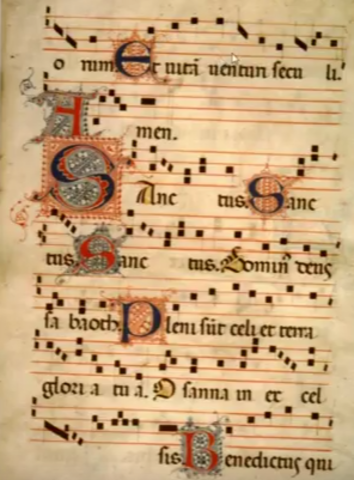 o rum Et vitã venturi secu li.
A men.
Sanc tus. Sanc
tus. Sanc tus. Domin deus
sa baoth. Pleni sũt celi et terra
glori a tu a. O sanna in ex cel
sis Benedictus qui